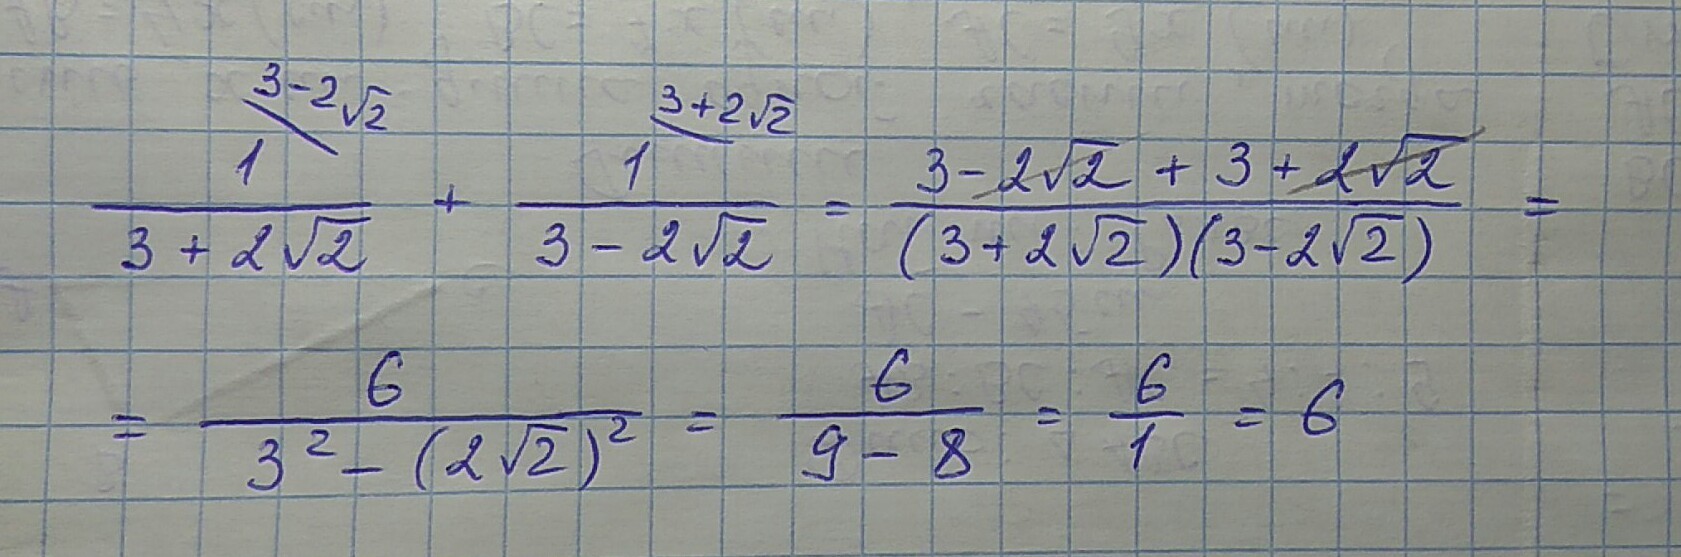 3-2√2 3+2√2
1/(3+2√2) + 1/(3-2√2) = (3-2√2+3+2√2)/((3+2√2)(3-2√2)) =
= 6/(3²-(2√2)²) = 6/(9-8) = 6/1 = 6